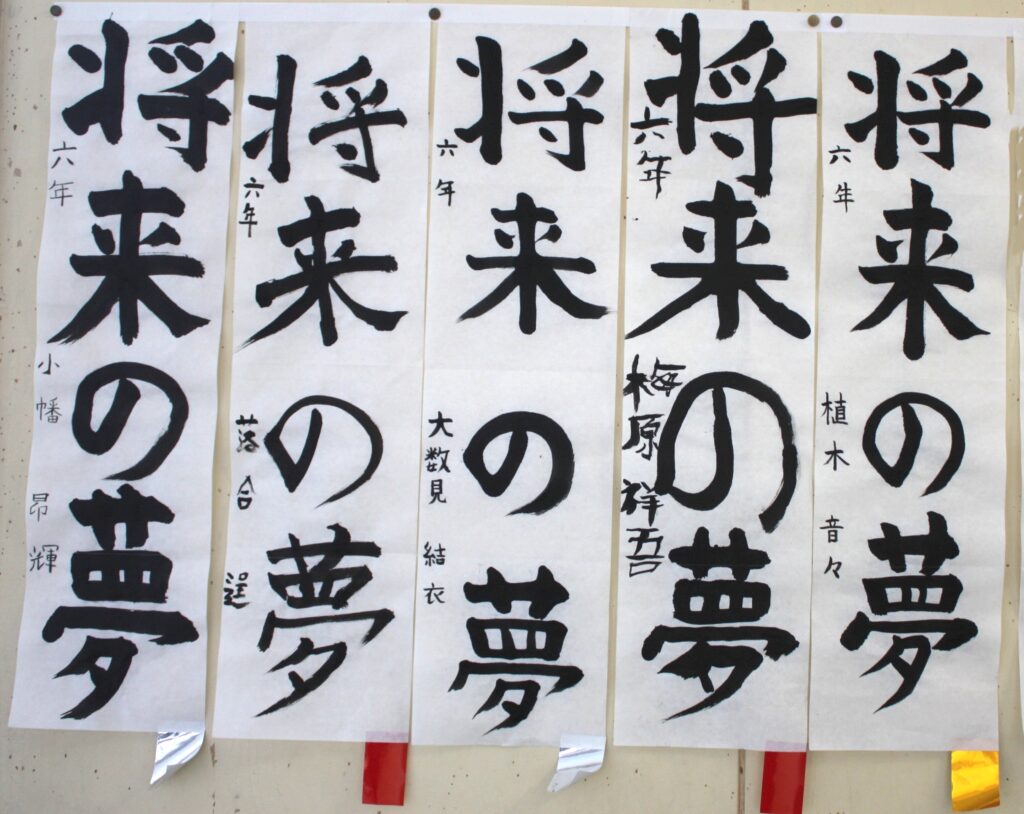 将来の夢
六年 植木 音々
将来の夢
六年 梅原 祥吾
将来の夢
六年 大数見 結衣
将来の夢
六年 落合
将来の夢
六年 小幡 昂輝